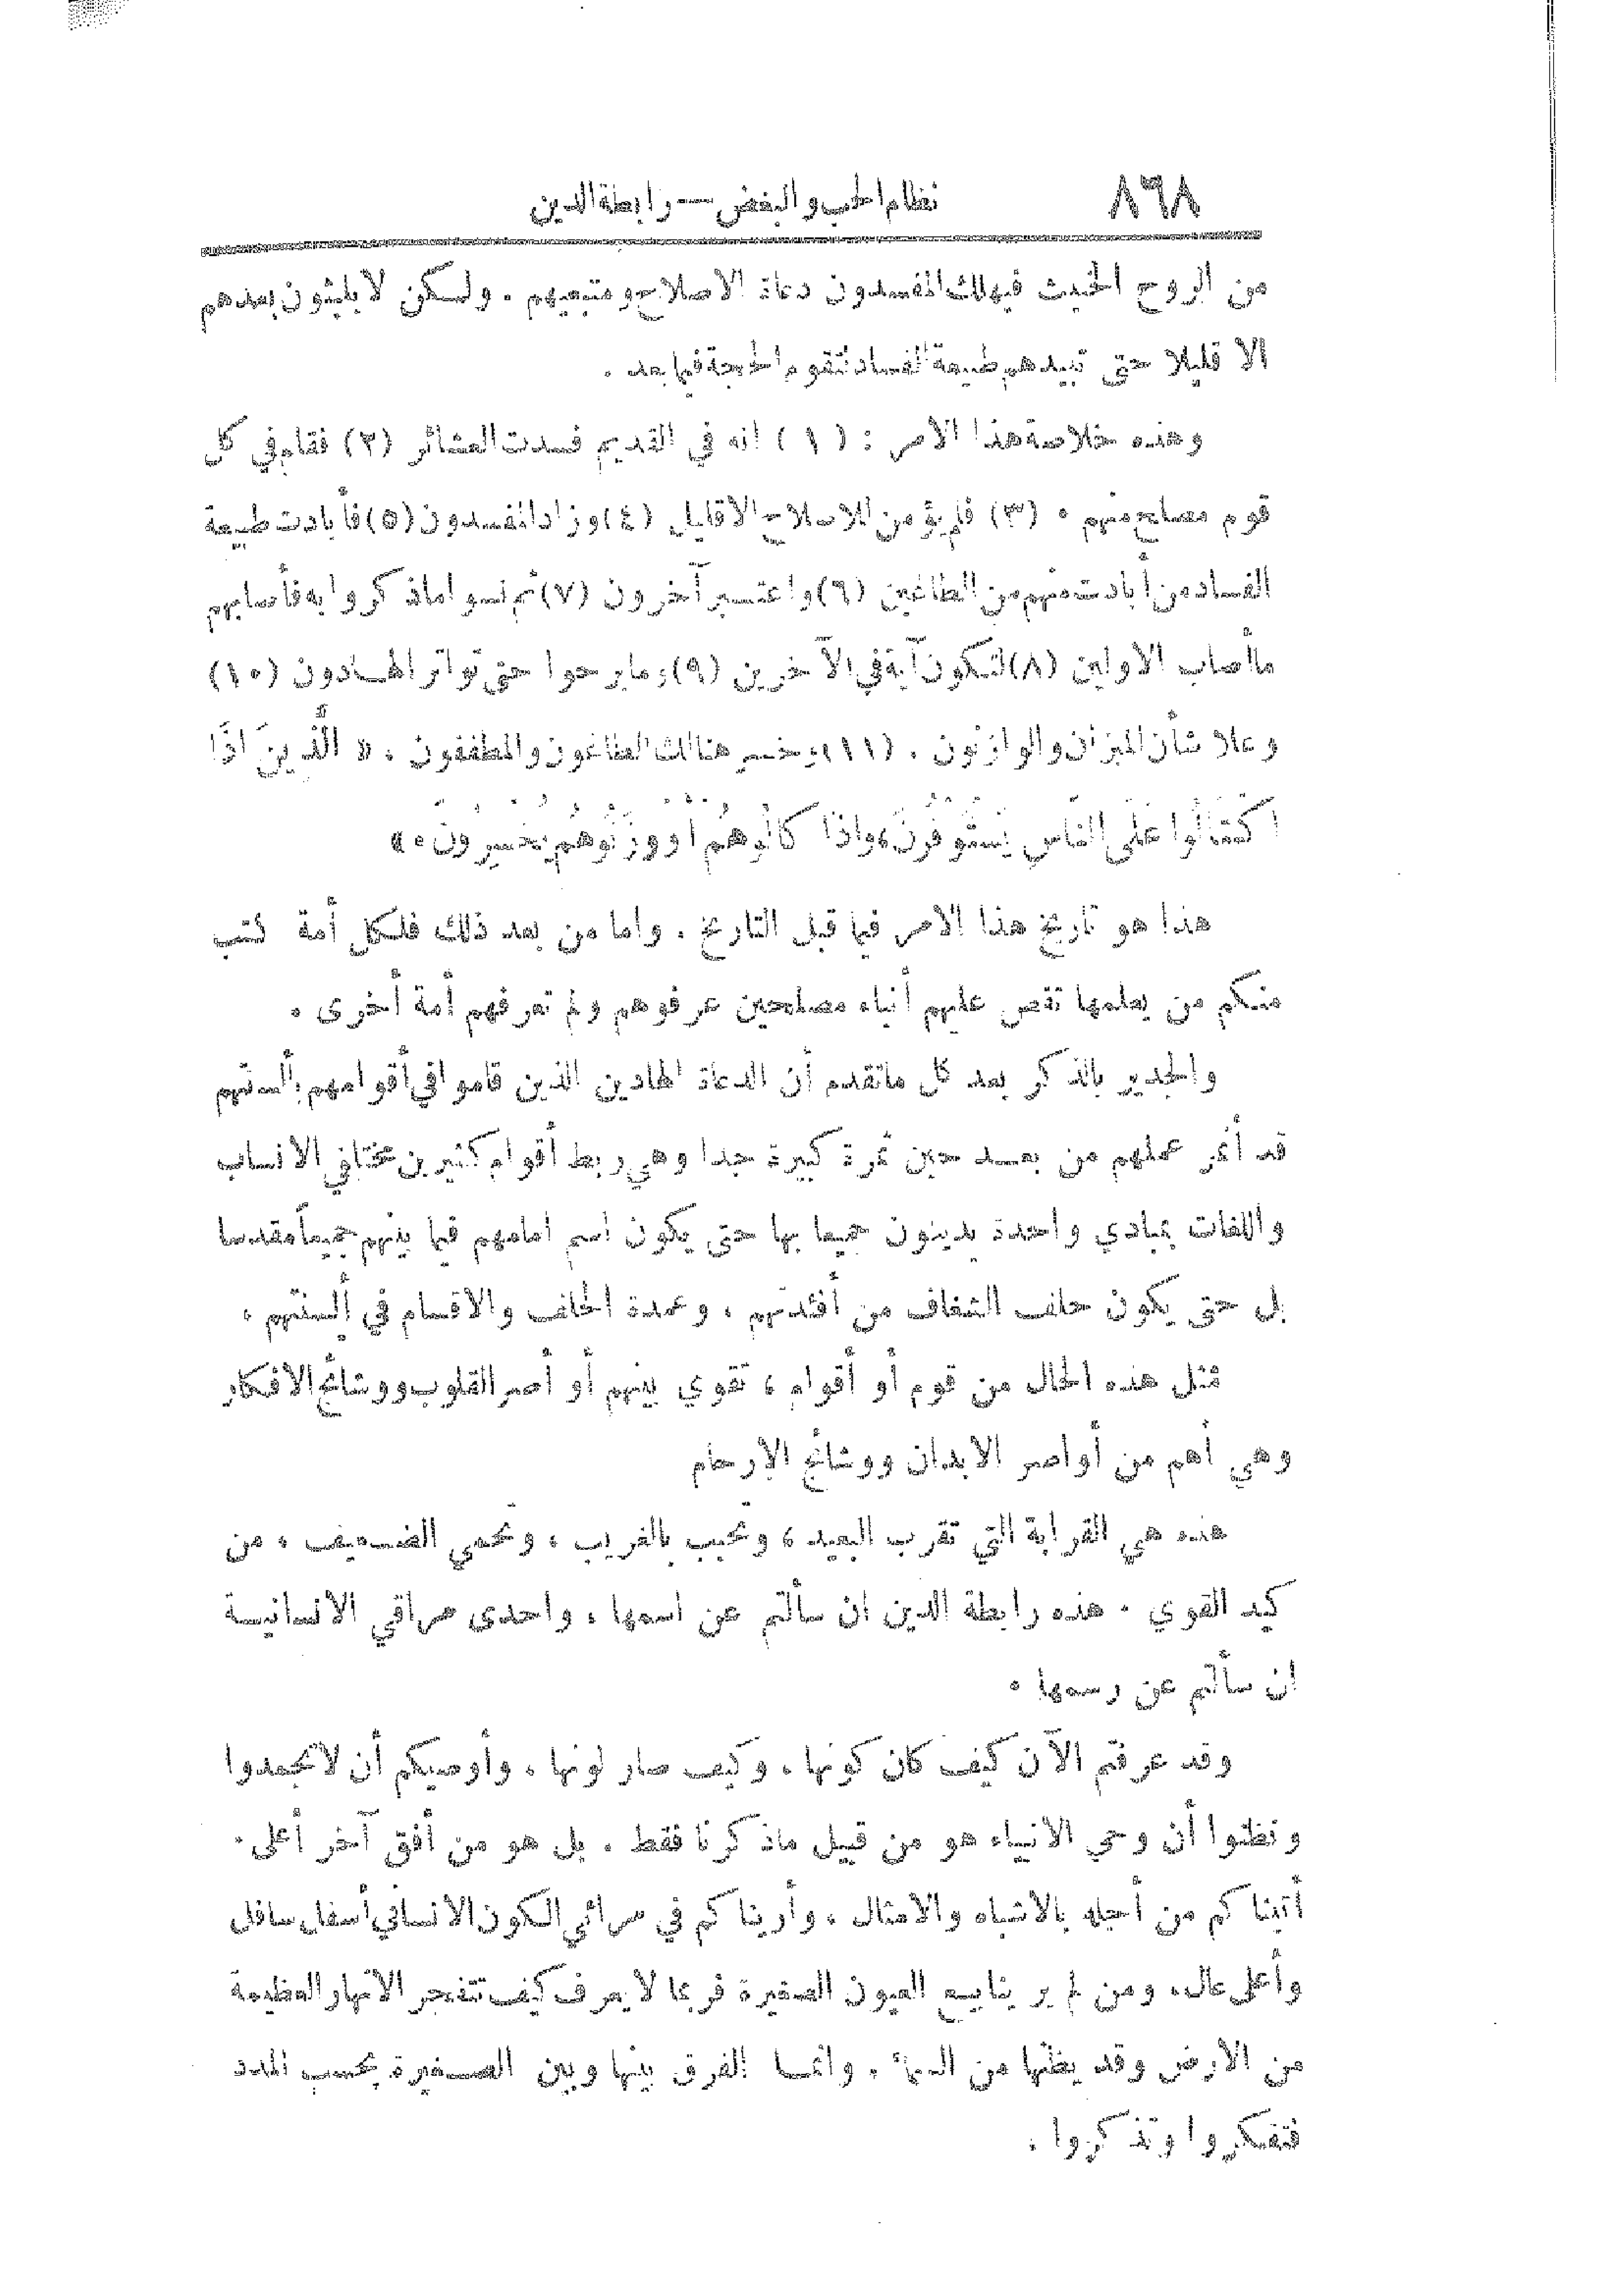 ٨٦٨ نظام الحب والبغض — رابطة الدين
من الروح الخبيث فيهلك المفسدون دعاة الاصلاح ومتبعيهم . ولكن لا يلبثون بعدهم
الا قليلا حتى تبيدهم طبيعة الفساد لتقوم الحجة فيما بعد .
وهذه خلاصة هذا الامر : (١) انه في القديم فسدت العشائر (٢) فقام في كل
قوم مصلح منهم . (٣) فلم يؤمن للاصلاح الا قليل (٤) وزاد المفسدون (٥) فأبادت طبيعة
الفساد من أبادت منهم من الطاغين (٦) واعتبر آخرون (٧) ثم نسوا ماذكروا به فأصابهم
ماأصاب الاولين (٨) لتكون آية في الآخرين (٩) وما برحوا حتى تواتر الهادون (١٠)
وعلا شأن الميزان والوازنون . (١١) وخسر هنالك الطاغون والمطففون . « الَّذِينَ اذَا
اكْتَالُوا عَلَى النَّاسِ يَسْتَوْفُونَ ، وَاذَا كَالُوهُمْ أَو وَزَنُوهُمْ يُخْسِرُونَ . »
هذا هو تاريخ هذا الامر فيما قبل التاريخ . واما من بعد ذلك فلكل أمة كتب
منكم من يعلمها تقص عليهم أنباء مصلحين عرفوهم ولم تعرفهم أمة أخرى .
والجدير بالذكر بعد كل ماتقدم أن الدعاة الهادين الذين قاموا في أقوامهم بألسنتهم
قد أثمر عملهم من بعد حين ثمرة كبيرة جدا وهي ربط أقوام كثيرين مختلفي الانساب
واللغات بمبادي واحدة يدينون جميعا بها حتى يكون اسم امامهم فيما بينهم جميعاً مقدسا
بل حتى يكون حلف الشغاف من أفئدتهم ، وعمدة الحلف والاقسام في ألسنتهم .
مثل هذه الحال من قوم أو أقوام ، تقوي بينهم أواصر القلوب ووشائج الافكار
وهي أهم من أواصر الابدان ووشائج الارحام
هذه هي القرابة التي تقرب البعيد ، وتحبب بالغريب ، وتحمي الضعيف ، من
كيد القوي . هذه رابطة الدين ان سألتم عن اسمها ، واحدى مراقي الانسانية
ان سألتم عن رسمها .
وقد عرفتم الآن كيف كان كونها ، وكيف صار لونها ، وأوصيكم أن لا تجمدوا
وتظنوا أن وحي الانبياء هو من قبيل ماذكرنا فقط . بل هو من أفق آخر أعلى .
أتيناكم من أجله بالاشباه والامثال ، وأريناكم في مرائي الكون الانساني أسفل سافل
وأعلى عال . ومن لم ير ينابيع العيون الصغيرة فربما لا يعرف كيف تتفجر الانهار العظيمة
من الارض وقد يظنها من السماء . وانما الفرق بينها وبين الصغيرة بحسب المدد
فتفكروا وتذكروا .